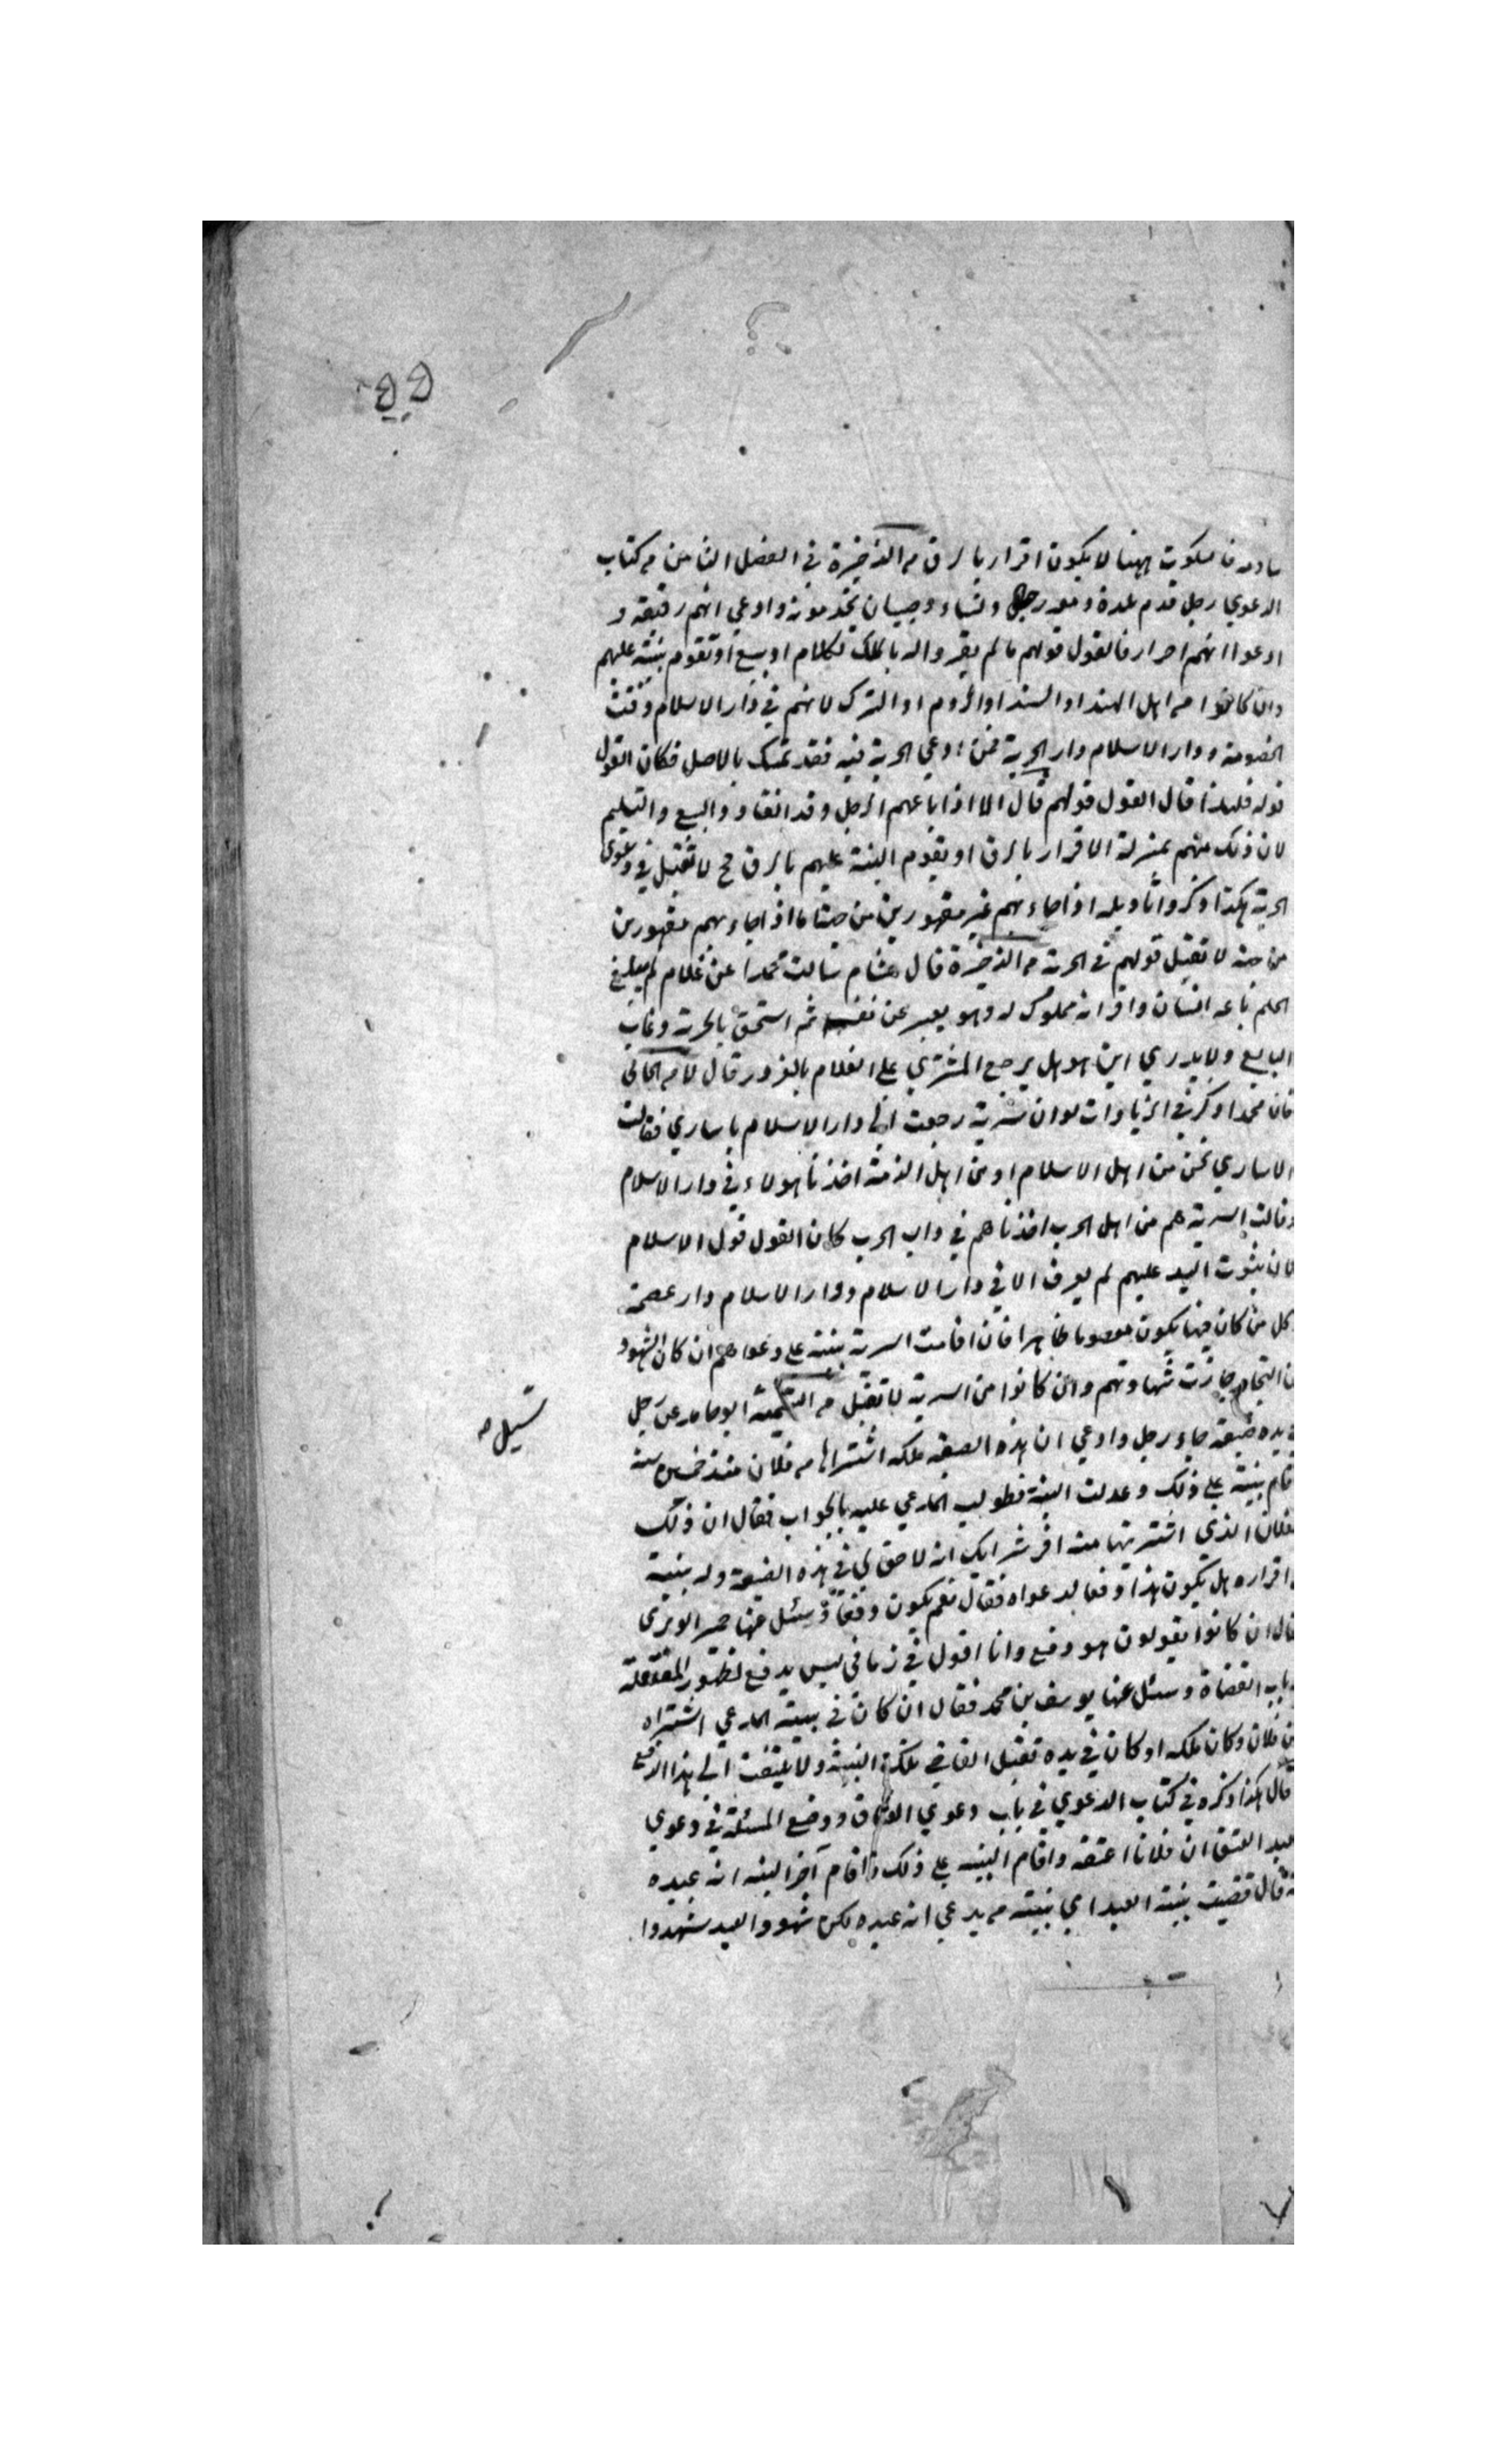 فالسكوت ههنا لا يكون اقرار بالرق من الذخيرة في الفصل الثامن من كتاب
الدعوي رجل قدم بلدة ومعه رجال ونساء وصبيان يخدمونه وادعي انهم رقيقه و
ادعوا انهم احرار فالقول قولهم ما لم يقروا له بالملك بكلام او بيع او تقوم بينة عليهم
وان كانوا من اهل الهند او السند او الروم او الترك لانهم في دار الاسلام وقت
الخصومة ودار الاسلام دار الحرية فمن ادعي الحرية فيه فقد تمسك بالاصل فكان القول
قوله فلهذا قال القول قولهم قال الا اذا باعهم الرجل وقد انقادوا البيع والتسليم
لان ذلك منهم بمنزلة الاقرار بالرق او يقوم البينة عليهم بالرق ح لا تقبل في دعوي
الحرية هكذا ذكروا تاويله اذا جاء بهم غير مقهورين من جهته اما اذا جاء بهم مقهورين
من جهته لا تقبل قولهم في الحرية من الذخيرة قال هشام سالت محمدا عن غلام لم يبلغ
الحلم باعه انسان واقر انه مملوك له وهو يعبر عن نفسه ثم استحق بالحرية وغاب
البايع ولا يدري اين هو هل يرجع المشتري علي الغلام بالغرور قال لا من الخاني
فان محمدا ذكر في الزيادات لو ان سرية رجعت الي دار الاسلام باساري فقالت
الاساري نحن من اهل الاسلام او من اهل الذمة اخذنا هولاء في دار الاسلام
وقالت السرية هم من اهل الحرب اخذناهم في دار الحرب كان القول قول الاسلام
لان ثبوت اليد عليهم لم يعرف الا في دار الاسلام ودار الاسلام دار عصمة
وكل من كان فيها يكون معصوما ظاهرا فان اقامت السرية بينة علي دعواهم ان كان الشهود
من التجار جازت شهادتهم وان كانوا من السرية لا تقبل من التتمة ابو حامد عن رجل
سئل
في يده ضيعة جاء رجل وادعي ان هذه الضيعة ملكه اشتراها من فلان منذ خمس سنة
اقام بينة علي ذلك وعدلت البينة فطولب المدعي عليه بالجواب فقال ان ذلك
الفلان الذي اشتريتها منه اقر انه لا حق لي في هذه الضيعة وله بينة
اقراره هل يكون هذا دفعا لدعواه فقال نعم يكون دفعا وسئل عنها حمير الوبري
قال ان كانوا يقولون هو دفع وانا اقول في زماني ليس بدفع لظهور المفتعلة
باب القضاة وسئل عنها يوسف بن محمد فقال ان كان في بينة المدعي اشتراه
من فلان وكان ملكه او كان في يده تقبل القاضي تلك البينة ولا يلتفت الي هذا الدفع
قال هكذا ذكره في كتاب الدعوي في باب دعوي العتاق ووضع المسئلة في دعوي
عبد العتق ان فلانا اعتقه واقام البينة علي ذلك واقام آخر البينة انه عبده
قال قضيت بينة العبد اي بينة من يدعي انه عبده لكن شهود العبد شهدوا